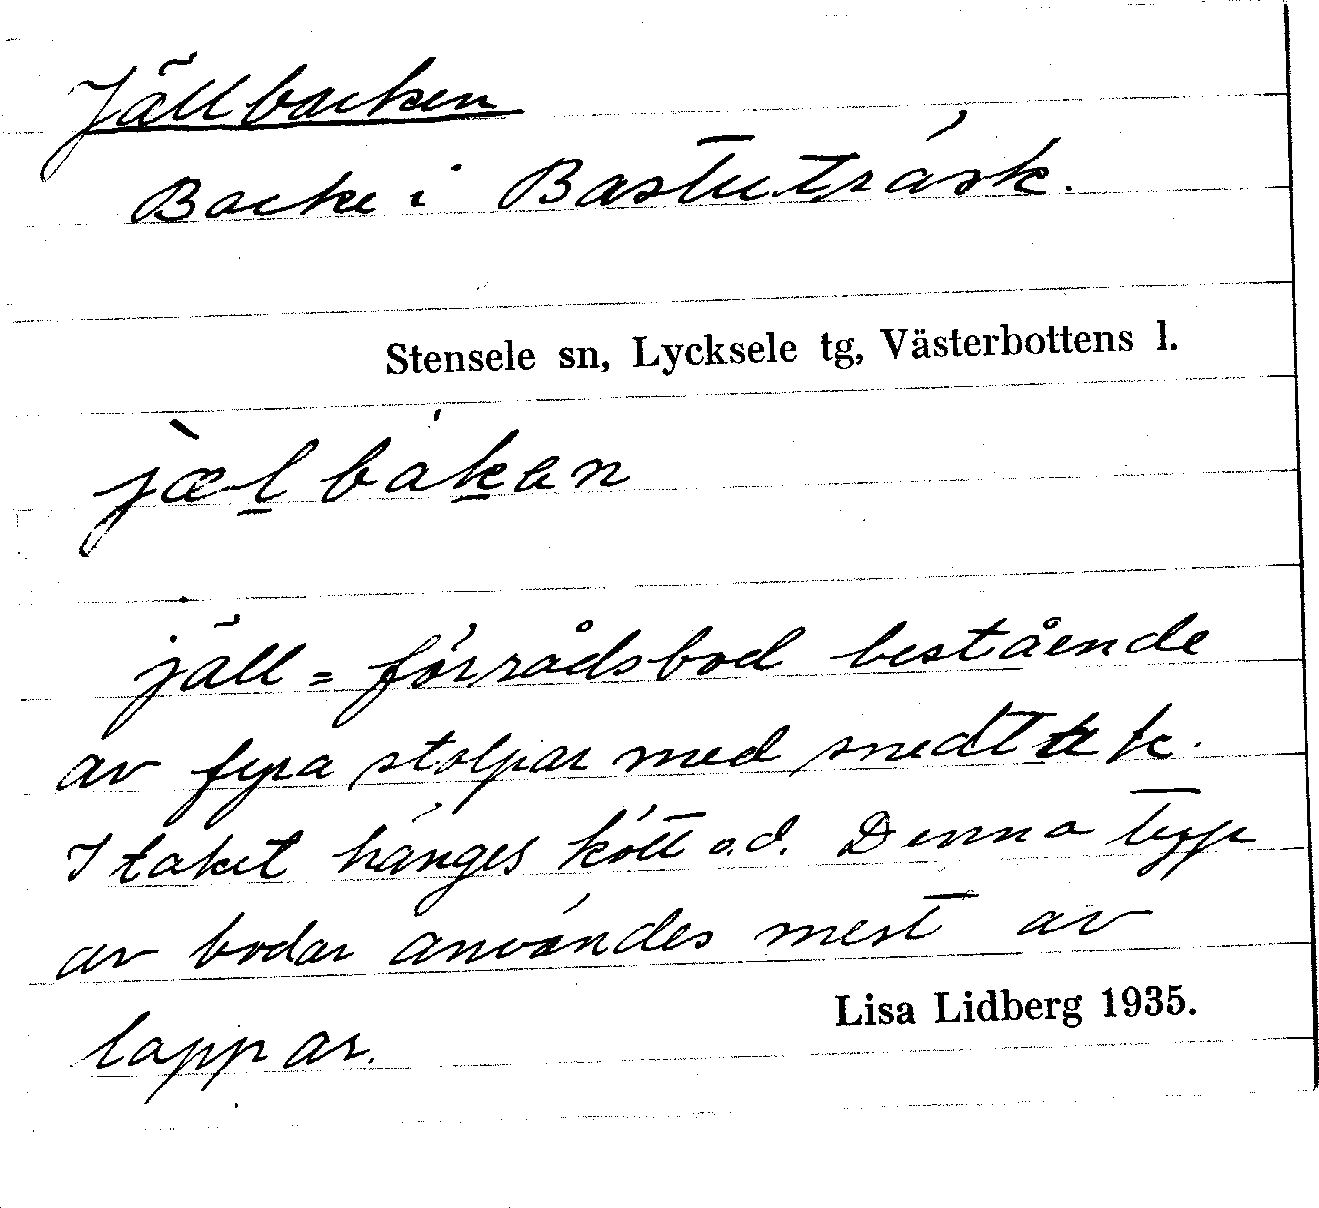 Jällbacken
Backe i Bastuträsk.
Stensele sn, Lycksele tg, Västerbottens l.
jæ̀l̲bák̲an
jäll = förrådsbod bestående
av fyra stolpar med snedtak.
I taket hänges kött o.d. Denna typ
av bodar användes mest av
lappar.
Lisa Lidberg 1935.